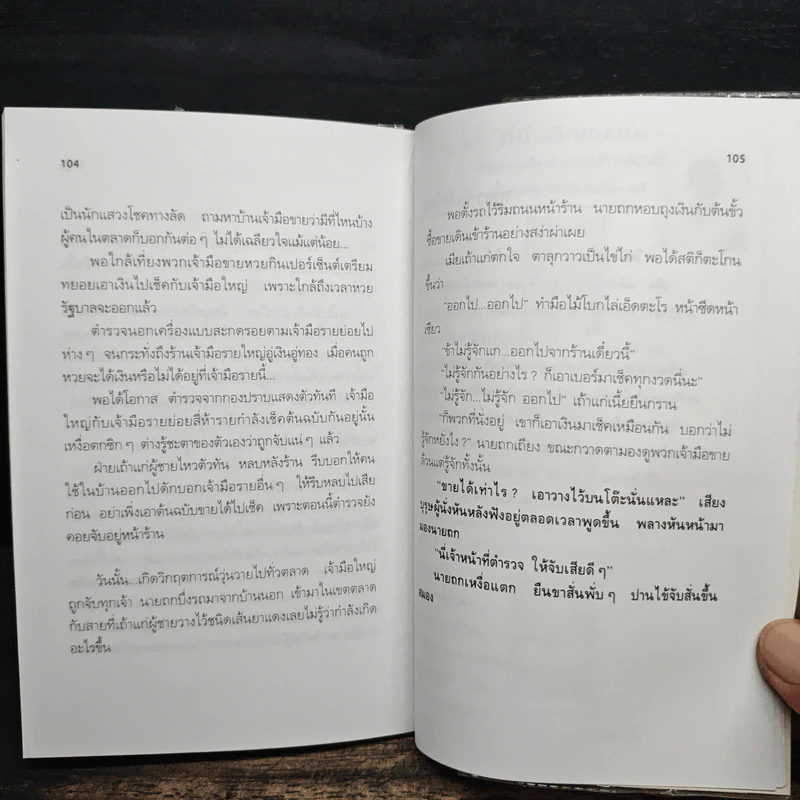 104
เป็นนักแสวงโชคทางลัด ถามหาบ้านเจ้ามือขายว่ามีที่ไหนบ้าง
ผู้คนในตลาดก็บอกกันต่อ ๆ ไม่ได้เฉลียวใจแม้แต่น้อย...
พอใกล้เที่ยงพวกเจ้ามือขายหวยกินเปอร์เซ็นต์เตรียม
ทยอยเอาเงินไปเช็คกับเจ้ามือใหญ่ เพราะใกล้ถึงเวลาหวย
รัฐบาลจะออกแล้ว
ตำรวจนอกเครื่องแบบสะกดรอยตามเจ้ามือรายย่อยไป
ห่าง ๆ จนกระทั่งถึงร้านเจ้ามือรายใหญ่อู่เงินอู่ทอง เมื่อคนถูก
หวยจะได้เงินหรือไม่ได้อยู่ที่เจ้ามือรายนี้...
พอได้โอกาส ตำรวจจากกองปราบแสดงตัวทันที เจ้ามือ
ใหญ่กับเจ้ามือรายย่อยสี่ห้ารายกำลังเช็คต้นฉบับกันอยู่นั้น
เหงื่อตกซิก ๆ ต่างรู้ชะตาของตัวเองว่าถูกจับแน่ ๆ แล้ว
ฝ่ายเถ้าแก่ผู้ชายไหวตัวทัน หลบหลังร้าน รีบบอกให้คน
ใช้ในบ้านออกไปดักบอกเจ้ามือรายอื่น ๆ ให้รีบหลบไปเสีย
ก่อน อย่าเพิ่งเอาต้นฉบับขายได้ไปเช็ค เพราะตอนนี้ตำรวจยัง
คอยจับอยู่หน้าร้าน
วันนั้น...เกิดวิกฤตการณ์วุ่นวายไปทั่วตลาด เจ้ามือใหญ่
ถูกจับทุกเจ้า นายถกบึ่งรถมาจากบ้านนอก เข้ามาในเขตตลาด
กับสายที่เถ้าแก่ผู้ชายวางไว้ชนิดเส้นยาแดงเลยไม่รู้ว่ากำลังเกิด
อะไรขึ้น
105
พอตั้งรถไว้ริมถนนหน้าร้าน นายถกหอบถุงเงินกับต้นขั้ว
ซื้อขายเดินเข้าร้านอย่างสง่าผ่าเผย
เมียเถ้าแก่ตกใจ ตาลุกวาวเป็นไข่ไก่ พอได้สติก็ตะโกน
ขึ้นว่า
“ออกไป...ออกไป” ทำมือไม้โบกไล่เอ็ดตะโร หน้าซีดหน้า
เซียว
“ข้าไม่รู้จักแก...ออกไปจากร้านเดี๋ยวนี้”
“ไม่รู้จักกันอย่างไร ? ก็เอาเบอร์มาเช็คทุกงวดนี่นะ”
“ไม่รู้จัก...ไม่รู้จัก ออกไป” เถ้าแก่เนี้ยยืนกราน
“ก็พวกที่นั่งอยู่ เขาก็เอาเงินมาเช็คเหมือนกัน บอกว่าไม่
รู้จักหยั่งไง ?” นายถกเถียง ขณะกวาดตามองดูพวกเจ้ามือขาย
ล้วนแต่รู้จักทั้งนั้น
“ขายได้เท่าไร ? เอาวางไว้บนโต๊ะนั่นแหละ” เสียง
บุรุษผู้นั่งหันหลังฟังอยู่ตลอดเวลาพูดขึ้น พลางหันหน้ามา
มองนายถก
“นี่เจ้าหน้าที่ตำรวจ ให้จับเสียดี ๆ”
นายถกเหงื่อแตก ยืนขาสั่นพั่บ ๆ ปานไข้จับสั่นขึ้น
สมอง